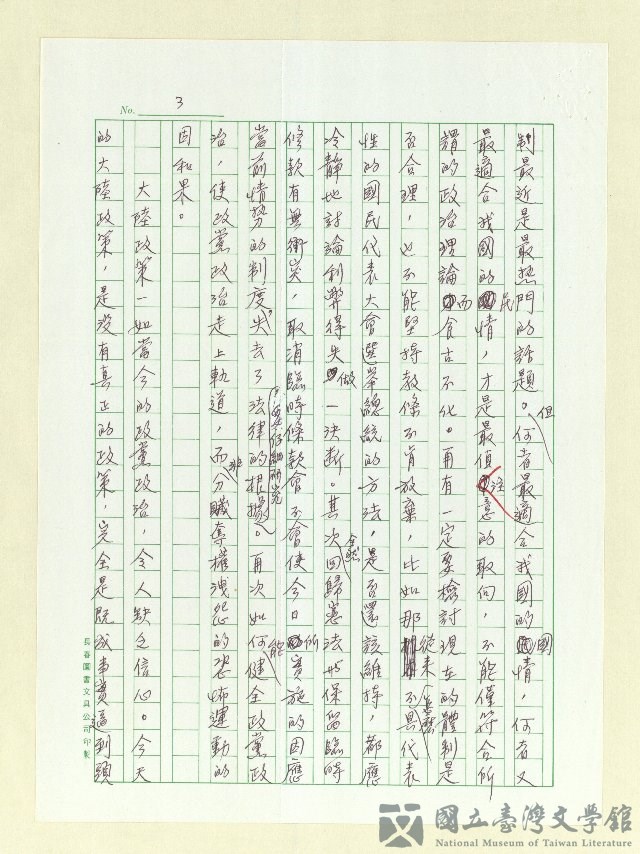 No. 3
制最近是最热門的話題。但何者最適合我國的國情，何者又
最適合我國的民情，才是最值注意的取向，不能僅符合所
謂的政治理論而食古不化。再有一定要檢討現在的體制是
否合理，也不能堅持教條不肯放棄，比如那從来不具代表
性的國民代表大會選舉總統的方法，是否還該維持，都應
冷靜地討論利弊得失做一決断。其次回歸憲法或保留臨時
條款有無衝突，取消臨時條款會不會使今日所實施的因應
當前情勢的制度失去了法律的根據。再次如何能健全政黨政
治，使政黨政治走上軌道，而非分贓奪權洩怨的恐怖運動的
因和果。
大陸政策一如當今的政黨政治，令人缺乏信心。今天
的大陸政策，是没有真正的政策，完全是既成事實逼到頭
長春圖書文具公司印製
國立臺灣文學館
National Museum of Taiwan Literature